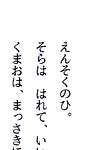 えんそくのひ。
そらは　はれて、い
くまおは、まっさき